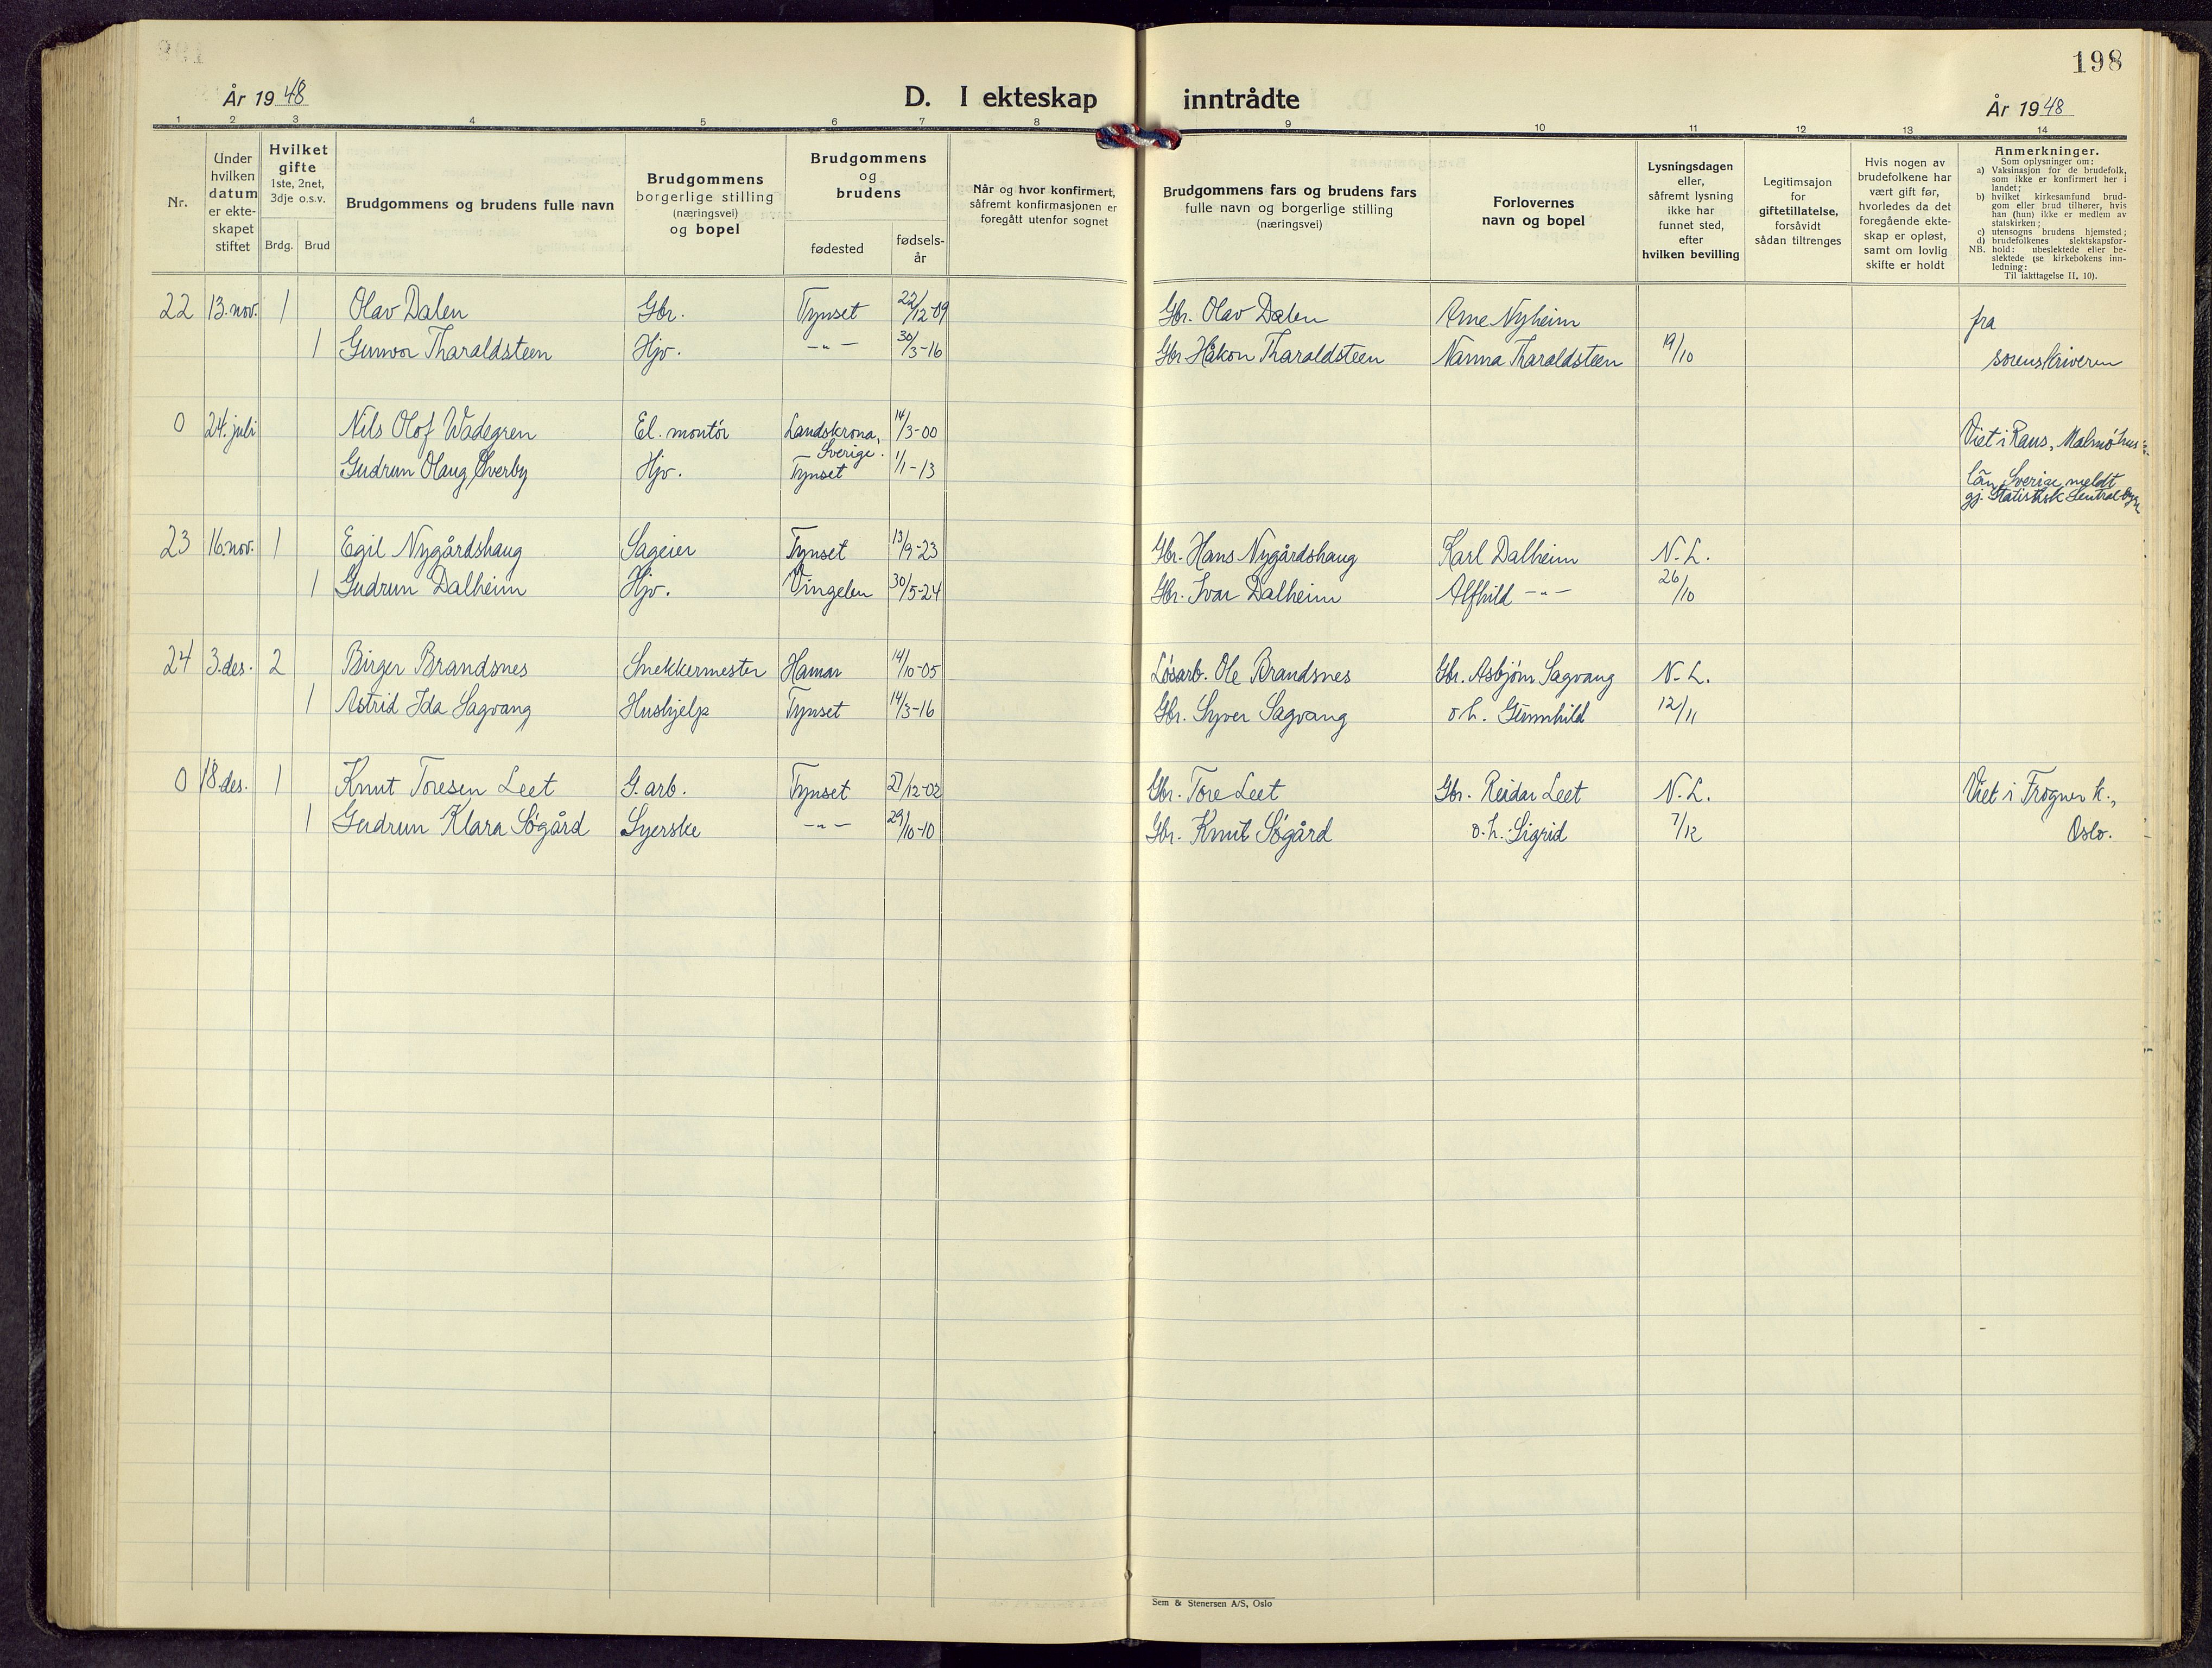 198
År 1948
D. I ekteskap inntrådte
År 1948
1 2 3 4 5 6 7 8 9 10 11 12 13 14
Nr.
Under
hvilken
datum
er ekte-
skapet
stiftet
Hvilket
gifte
1ste, 2net,
3dje o.s.v.
Brdg. Brud
Brudgommens og brudens fulle navn
Brudgommens
borgerlige stilling
(næringsvei)
og bopel
Brudgommens
og
brudens
fødested
fødsels-
år
Når og hvor konfirmert,
såfremt konfirmasjonen er
foregått utenfor sognet
Brudgommens fars og brudens fars
fulle navn og borgerlige stilling
(næringsvei)
Forlovernes
navn og bopel
Lysningsdagen
eller,
såfremt lysning
ikke har
funnet sted,
efter
hvilken bevilling
Legitimsajon
for
giftetillatelse,
forsåvidt
sådan tiltrenges
Hvis nogen av
brudefolkene har
vært gift før,
hvorledes da det
foregående ekte-
skap er opløst,
samt om lovlig
skifte er holdt
Anmerkninger.
Som oplysninger om:
a) Vaksinasjon for de brudefolk,
som ikke er konfirmert her i
landet;
b) hvilket kirkesamfund brud-
gom eller brud tilhører, hvis
han (hun) ikke er medlem av
statskirken;
c) utensogns brudens hjemsted;
d) brudefolkenes slektskapsfor-
NB. hold: ubeslektede eller be-
slektede (se kirkebokens inn-
ledning:
Til iakttagelse II, 10).
22 13. nov. 1 Olav Dalen Gbr. Tynset 22/12-09 Gbr. Olav Dalen Arne Nyheim fra
1 Gunvor Tharaldsteen Hjv. -"- 30/3-16 Gbr Håkon Tharaldsteen Nanna Tharaldsteen 19/10 sorenskriveren
0 24. juli Nils Olof Wadegren El. montör Landskrona, Sverige. 14/3-00 Viet i Raus, Malmöhus
Gudrun Olaug Øverby Hjv. Tynset 1/1-13 län Sverige meldt
gj. Statistisk Sentralbyrå
23 16. nov. 1 Egil Nygårdshaug Sageier Tynset 13/9-23 Gbr. Hans Nygårdshaug Karl Dalheim N. L.
1 Gudrun Dalheim Hjv. Vingelen 30/5-24 Gbr. Ivar Dalheim Alfhild -"- 26/10
24 3. des. 2 Birger Brandsnes Snekkermester Hamar 14/10-05 Løsarb. Ole Brandsnes Gbr. Asbjørn Sagvang N. L.
1 Astrid Ida Sagvang Hushjelp Tynset 14/3-16 Gbr. Syver Sagvang o. h. Gunnhild 12/11
0 18 des. 1 Knut Toresen Leet G. arb. Tynset 27/12-02 Gbr. Tore Leet Gbr. Reidar Leet N. L. Viet i Frogner k.,
1 Gudrun Klara Søgård Syerske -"- 29/10-10 Gbr. Knut Søgård o. h. Sigrid 7/12 Oslo.
Sem & Stenersen A/S, Oslo